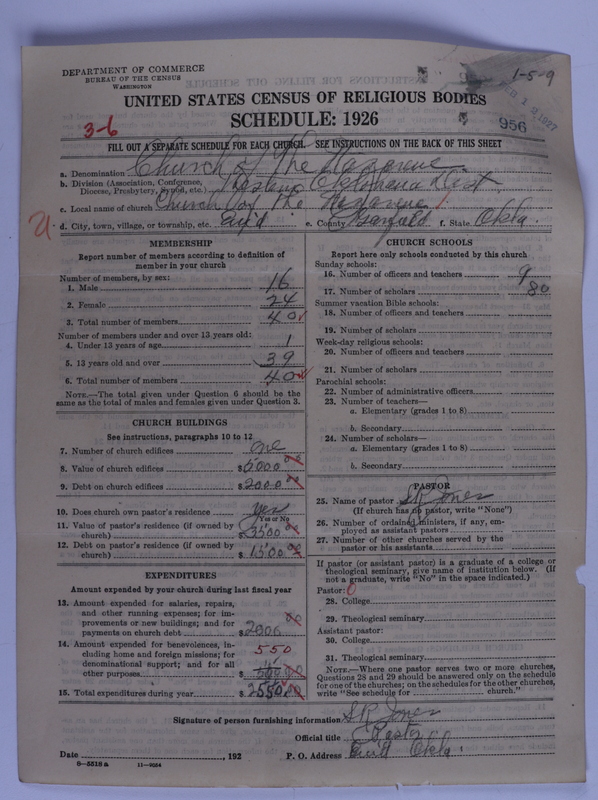 DEPARTMENT OF COMMERCE
BUREAU OF THE CENSUS
WASHINGTON
1-5-9
UNITED STATES CENSUS OF RELIGIOUS BODIES
SCHEDULE: 1926
956
3-6
FILL OUT A SEPARATE SCHEDULE FOR EACH CHURCH. SEE INSTRUCTIONS ON THE BACK OF THIS SHEET
a. Denomination Church of the Nazarene
b. Division (Association, Conference, Diocese, Presbytery, Synod, etc.) Eastern Oklahoma Dist
c. Local name of church Church of the Nazarene
d. City, town, village, or township, etc. Enid e. County Garfield f. State Okla.
MEMBERSHIP
Report number of members according to definition of
member in your church
Number of members, by sex:
1. Male 16
2. Female 24
3. Total number of members 40
Number of members under and over 13 years old:
4. Under 13 years of age 1
5. 13 years old and over 39
6. Total number of members 40
NOTE.—The total given under Question 6 should be
same as the total of males and females given under Question 3.
CHURCH BUILDINGS
See instructions, paragraphs 10 to 12
7. Number of church edifices one
8. Value of church edifices $5000 00
9. Debt on church edifices $2000 00
10. Does church own pastor's residence yes
Yes or No
11. Value of pastor's residence (if owned by
church) $3500 00
12. Debt on pastor's residence (if owned by
church) $1500 00
EXPENDITURES
Amount expended by your church during last fiscal year
13. Amount expended for salaries, repairs,
and other running expenses; for im-
provements or new buildings; and for
payments on church debt $2000 00
14. Amount expended for benevolences, in- 550
cluding home and foreign missions; for
denominational support; and for all
other purposes
15. Total expenditures during year $2550.00
CHURCH SCHOOLS
Report here only schools conducted by this church
Sunday schools:
16. Number of officers and teachers 9
17. Number of scholars 80
Summer vacation Bible schools:
18. Number of officers and teachers
19. Number of scholars
Week-day religious schools:
20. Number of officers and teachers
21. Number of scholars
Parochial schools:
22. Number of administrative officers
23. Number of teachers—
a. Elementary (grades 1 to 8)
b. Secondary
24. Number of scholars—
a. Elementary (grades 1 to 8)
b. Secondary
PASTOR
25. Name of pastor S R Jones
(If church has no pastor, write "None")
26. Number of ordained ministers, if any, em-
ployed as assistant pastors
27. Number of other churches served by the
pastor or his assistants
If pastor (or assistant pastor) is a graduate of a college or
theological seminary, give name of institution below. (If
not a graduate, write "No" in the space indicated.)
Pastor: 0
28. College
29. Theological seminary
Assistant pastor:
30. College
31. Theological seminary
NOTE.—Where one pastor serves two or more churches,
Questions 28 and 29 should be answered only on the schedule
for one of the churches; on the schedules for the other churches,
write "See schedule for church."
Signature of person furnishing information S R Jones
Official title Pastor
Date , 192 P. O. Address Enid Okla
8-5518 a 11-9554